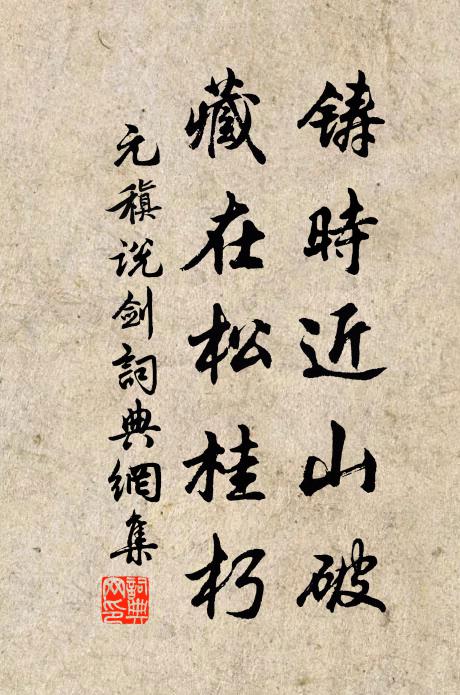 铸時近山破
藏在松桂朽
元稹说剑詞典網集
詞典网印